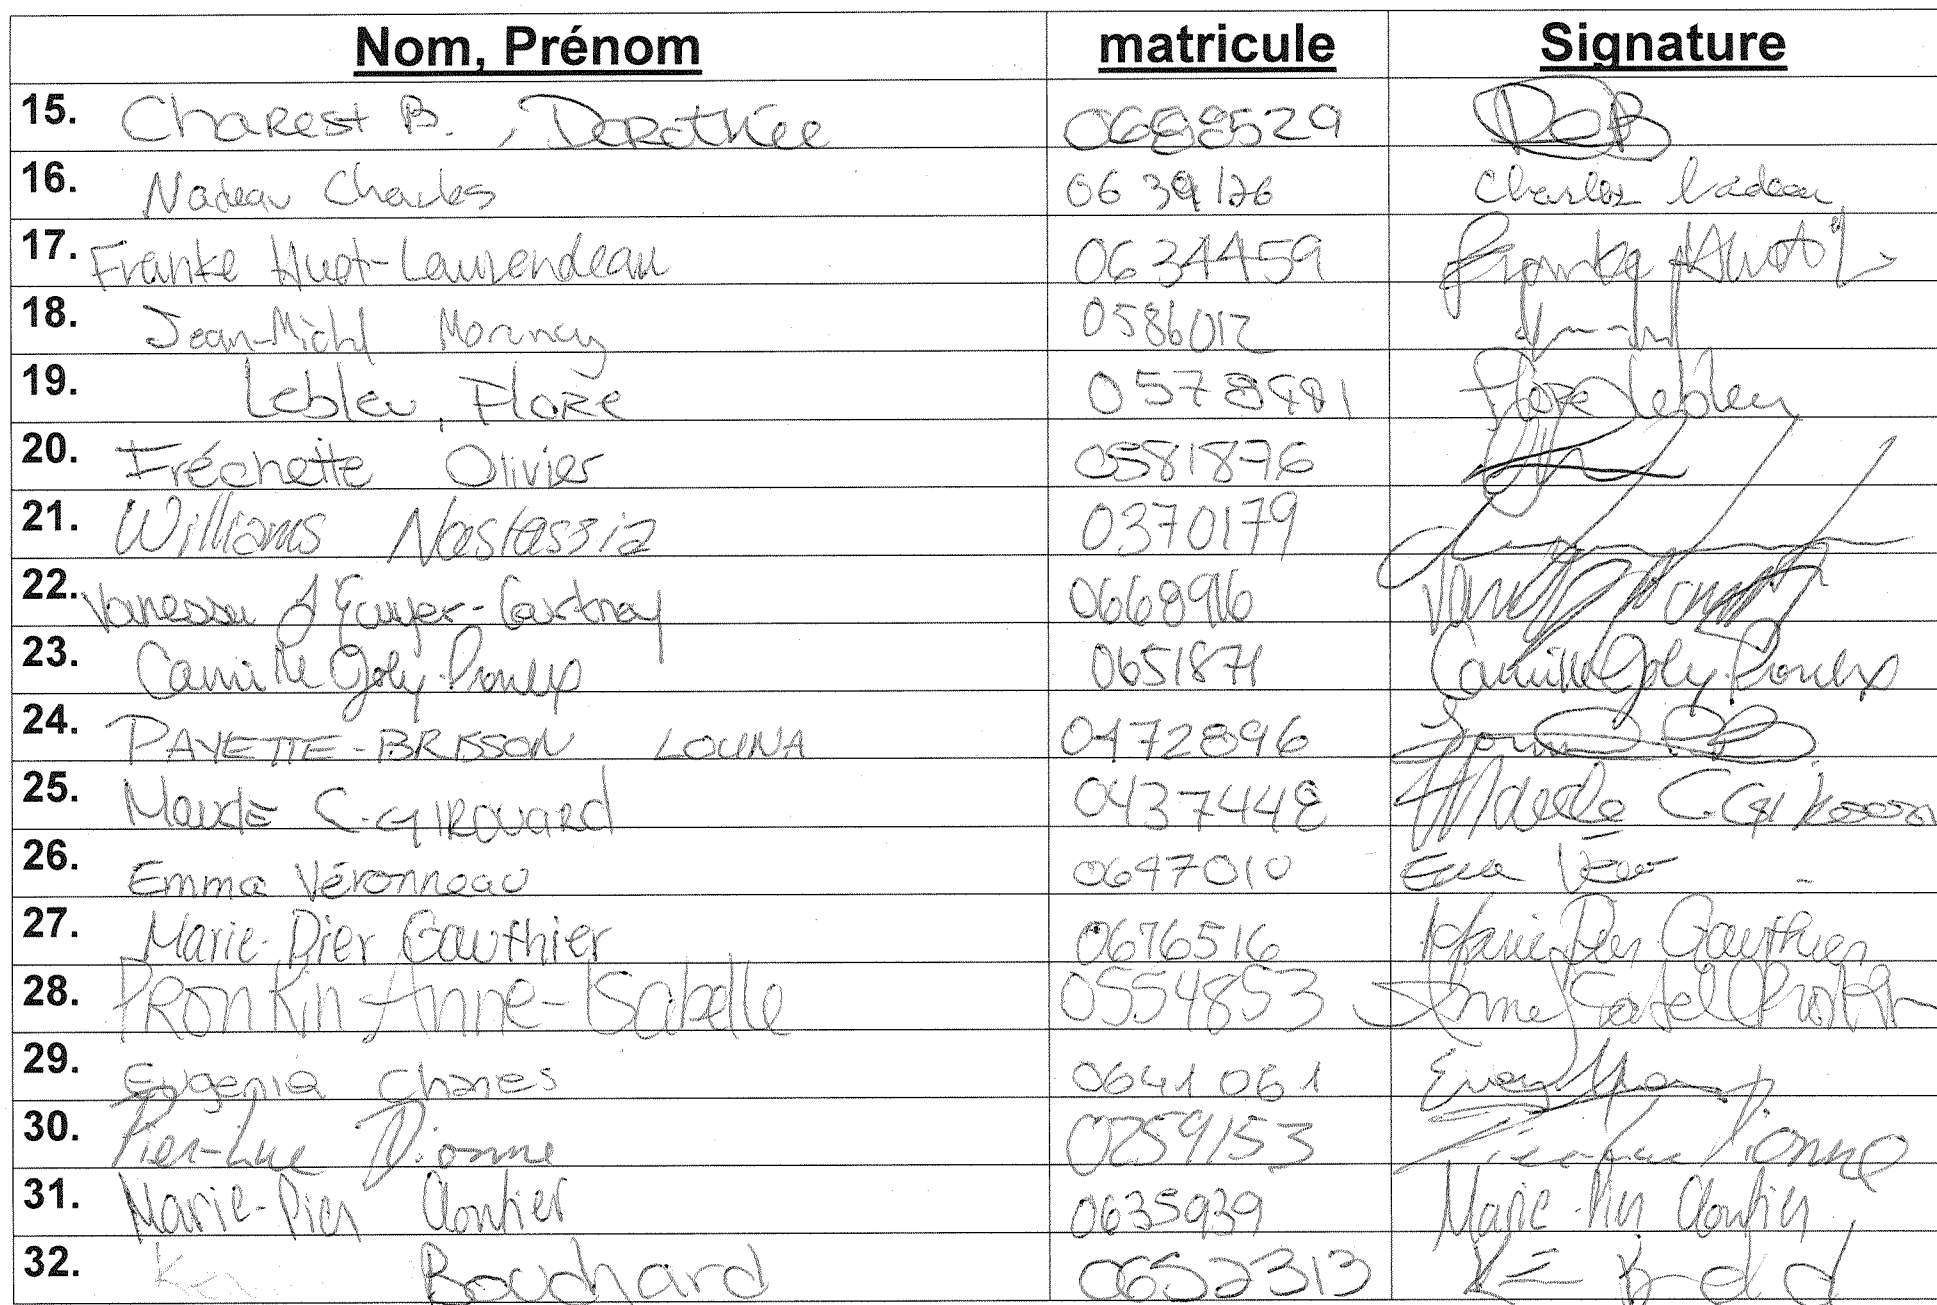 Nom, Prénom matricule Signature
15. Charest B., Dorothée 0688529 DCB
16. Nadeau Charles 0639126 Charles Nadeau
17. Franke Huot-Laurendeau 0634459 Franke Huot L
18. Jean-Michel Morency 0586012
19. Lebleu, Flore 0578981 Flore Lebleu
20. Fréchette Olivier 0581876
21. Williams Nastassia 0370179
22. Vanessa d'Ecuyer-Courtnay 0668916
23. Camille Joly-Proulx 0651871 Camille Joly-Proulx
24. PAYETTE-BRISSON LOUNA 0472896
25. Maude C.-GIROUARD 0437448 Maude C. Girouard
26. Emma Véronneau 0647010
27. Marie-Pier Gauthier 0676516 Marie-Pier Gauthier
28. Pronkin Anne-Isabelle 0554853
29. Eugenia Chanes 0641061
30. Pier-Luc Dionne 0259153 Pier-Luc Dionne
31. Marie-Pier Cloutier 0635939 Marie-Pier Cloutier
32. Bouchard 0652313